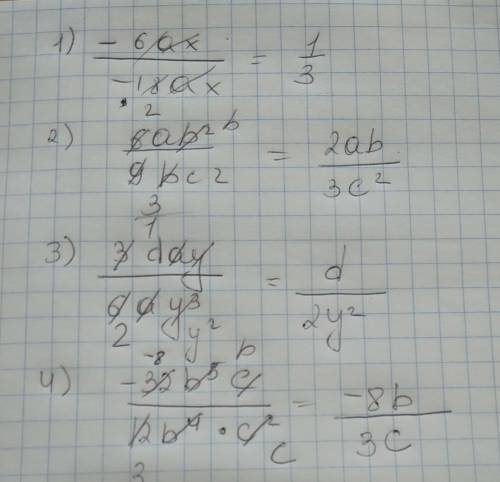 1) -6ax / -18ax = 1/3
2
2) 6ab² b / 9bc² = 2ab / 3c²
3
1
3) 3day / 6ay³ = d / 2y²
2 y²
-8 b
4) -32b⁵c / 12b⁴·c² = -8b / 3c
3 c